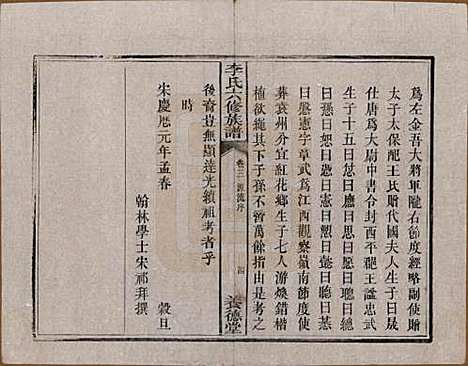 爲左金吾大將軍隴右節度經略副使贈
太子太保配王氏贈代國夫人生子曰晟
仕唐爲大尉中書令封西平王諡忠武
生子十五曰愿曰應曰恩曰聰曰總
曰愻曰憑曰恕曰憲曰愬曰懿曰聽曰惎
曰慇憲字章武爲江西觀察嶺南節度使
葬袁州分宜紅花鄉生子七人游煥錯楷
植欲繩其下子孫不啻萬餘指是考之
李氏六修族譜
卷三源流序
四
養德堂
後裔豈無顯達光績祖考者乎
時
宋慶厯元年孟春
穀旦
翰林學士宋祁拜撰